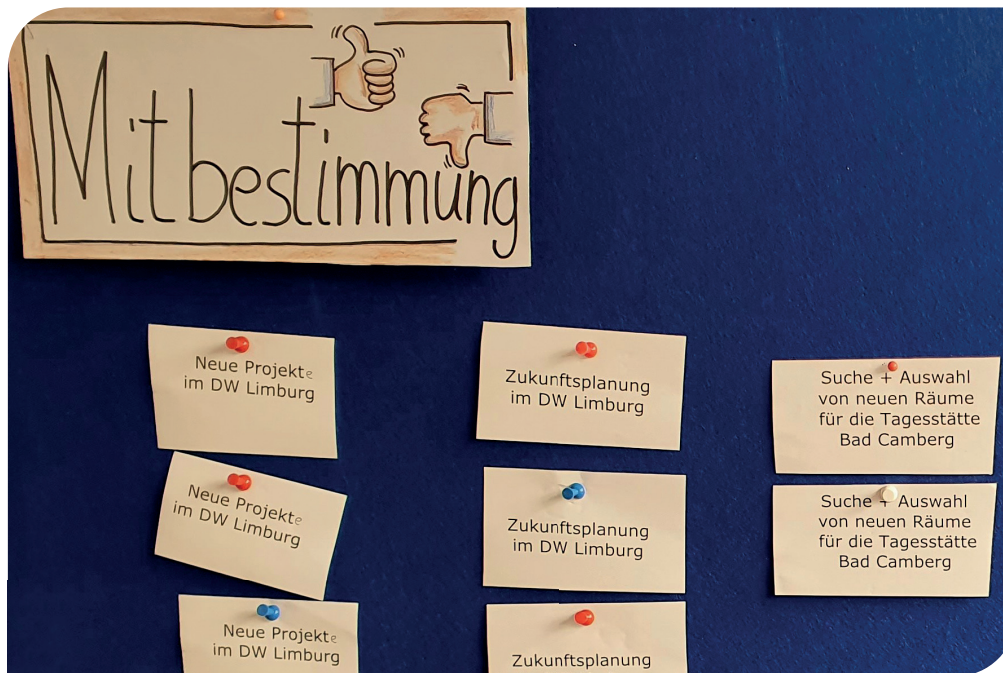 Mitbestimmung
Neue Projekte
im DW Limburg
Neue Projekte
im DW Limburg
Neue Projekte
im DW Limburg
Zukunftsplanung
im DW Limburg
Zukunftsplanung
im DW Limburg
Zukunftsplanung
Suche + Auswahl
von neuen Räume
für die Tagesstätte
Bad Camberg
Suche + Auswahl
von neuen Räume
für die Tagesstätte
Bad Camberg